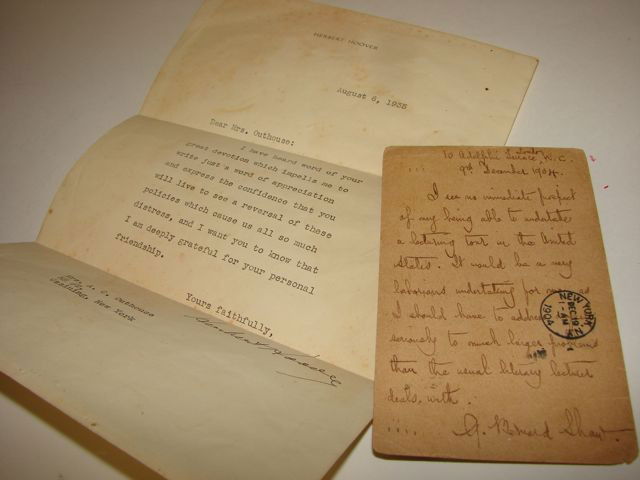 HERBERT HOOVER
August 6, 1935
Dear Mrs. Outhouse:
I have heard word of your
great devotion which impells me to
write just a word of appreciation
and express the confidence that you
will live to see a reversal of these
policies which cause us all so much
distress, and I want you to know that
I am deeply grateful for your personal
friendship.
Yours faithfully,
Mrs. A. C. Outhouse
New York
10 Adelphi Terrace, W.C.
London
9th December 1904.
I see no immediate prospect
of my being able to undertake
a lecturing tour in the United
States. It would be a very
laborious undertaking for me, as
I should have to address
seriously to much larger problems
than the usual literary lecture
deals with.
G. Bernard Shaw.
YORK
DEC 19
1904